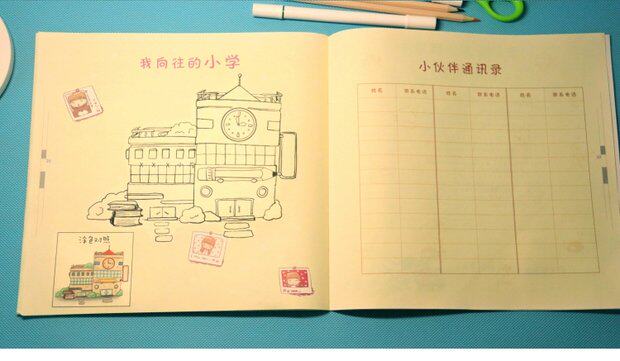 我向往的小学
涂色对照
小伙伴通讯录
姓名 联系电话 姓名 联系电话 姓名 联系电话